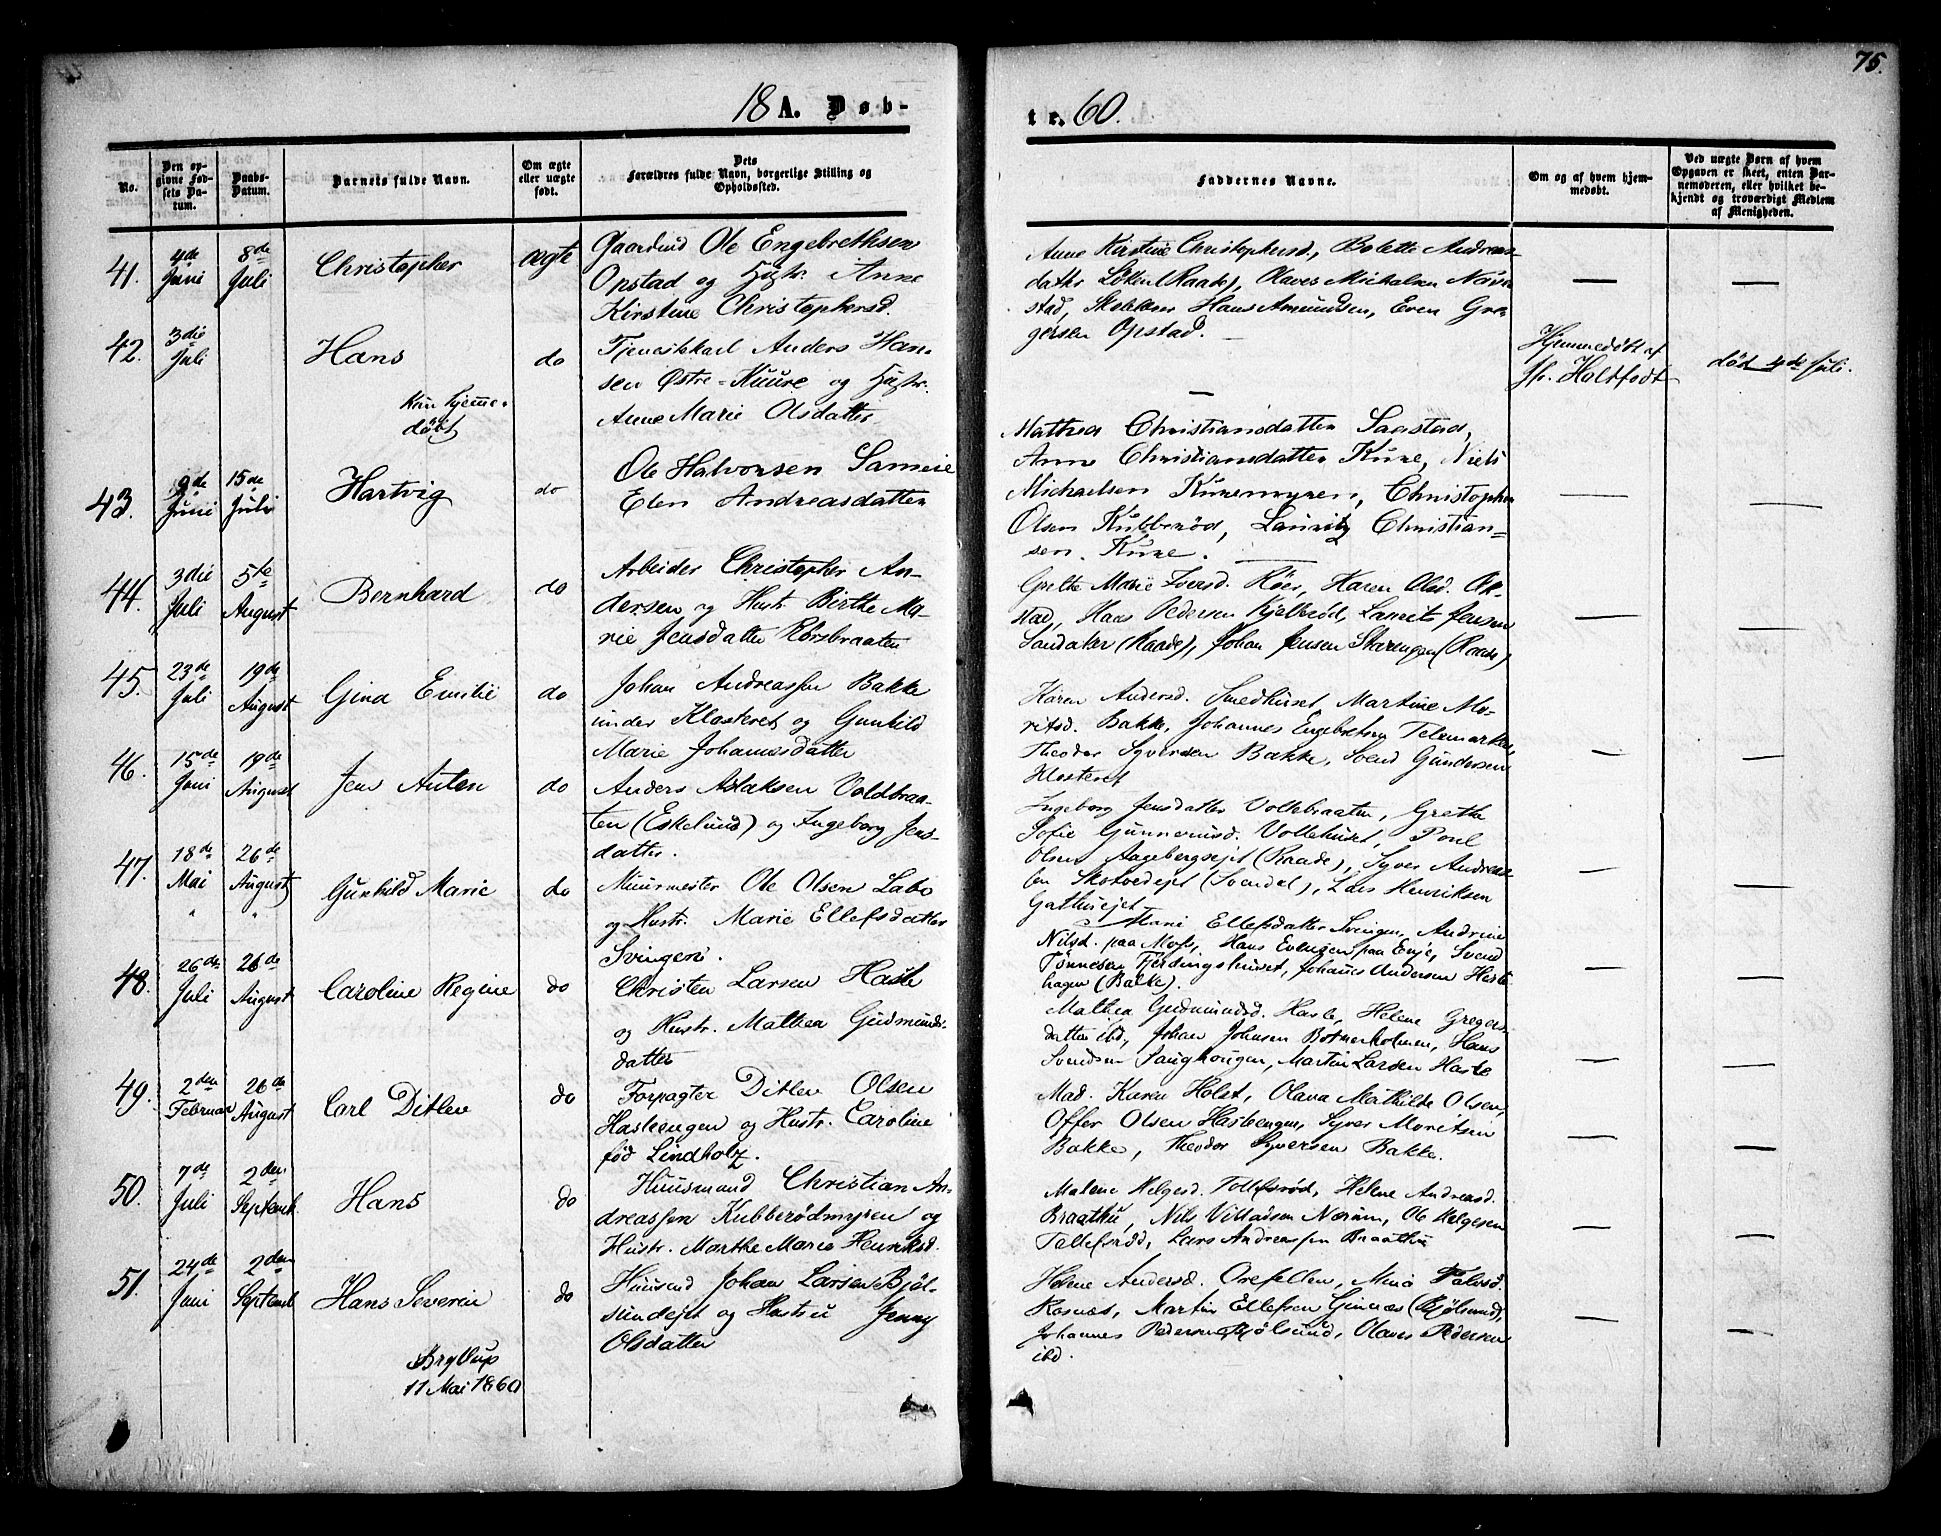 75.
18 A. Døb-
te. 60.
No.
Den op-
givne Fød-
sels Da-
tum.
Daabs-
Datum.
Barnets fulde Navn.
Om ægte
eller uægte
født.
Dets
Forældres fulde Navn, borgerlige Stilling og
Opholdssted.
Faddernes Navne.
Om og af hvem hjem-
medøbt.
Ved uægte Børn af hvem
Opgaven er skeet, enten Bar-
nemoderen, eller hvilket be-
kjendt og troværdigt Medlem
af Menigheden.
41.
4de
Juni
8de
Juli
Christopher
ægte
Gaardmd Ole Engebrethsen
Opstad og Hustr. Anne
Kirstine Christophersd.
Anne Kirstine Christophersd, Bolette Andreas-
datter Løken (Raade), Olaves Michalsen
stad, Hans Amundsen, Even Gre-
gersen Opstad.
42.
3die
Juli
Hans
Kun hjemme-
døbt
do
Tjenestekarl Anders Han-
sen Østre-Kuure og Hustr.
Anne Marie Olsdatter
Hjemmedøbt af
Holtfodt
død 4de Juli.
43.
9de
Juni
15de
Juli
Hartvig
do
Ole Halvorsen Sameie
Elen Andreasdatter
Mathea Christiansdatter Saastad,
Anne Christiansdatter Kure, Niels
Michaelsen Kuremyren, Christopher
Olsen Kubberød, Lauritz Christian-
sen Kure.
44.
3die
Juli
5te
August
Bernhard
do
Arbeider Christopher An-
dersen og Hustr Birthe Ma-
rie Jensdatter Korsbraaten
Grethe Marie Iversd. Röer, Karen Olsd. Ok-
stad, Hans Pedersen Kjelbrød, Laurits Jensen
Sandaker (Raade), Johan Jensen Starengen (Raade)
45.
23de
Juli
19de
August
Gina Emilie
do
Johan Andreassen Bakke
under Klosteret og Gunhild
Marie Johannesdatter
Karen Andersd. Smedhuset, Martine Mo-
ritsd. Bakke, Johannes Engebretsen Telemarken
Theodor Syversen Bakke, Svend Gundersen
Klosteret
46.
15de
Juni
19de
August
Jens Anton
do
Anders Aslaksen Voldbraa-
ten (Eskelund) og Ingeborg Jens-
datter.
Ingeborg Jensdatter Voldbraaten, Grethe
Sofie Gunnerusd. Vollehuset, Poul
Olsen Aagebergsejet (Raade), Syver Andreas-
sen Skotvedejet (Svendal), Lars Henriksen
Gathusejet
47.
18de
Mai
"
26de
August
"
Gunhild Marie
do
Muurmester Ole Olsen Labo
og Hustr. Marie Ellefsdatter
Svingen.
Marie Ellefsdatter Svingen, Andrine
Nilsd. paa Moss, Hans Evensen paa Enje, Svend
Tønnesen Fjerdingshuset, Johannes Andersen Heste-
hagen (Bakke).
48.
26de
Juli
26de
August
Caroline Regine
do
Christen Larsen Hasle
og Hustr. Mathea Gudmunds-
datter
Mathea Gudmundsd. Hasle, Helene Gregers-
datter ibd, Johan Johnsen Botnerholmen, Hans
Svendsen Sanghougen, Martin Larsen Hasle
49.
2den
Februar
26de
August
Carl Ditlev
do
Forpagter Ditlev Olsen
Hasleengen og Hustr. Caroline
fød Lindholz.
Mad. Karen Holst, Olava Mathilde Olsen,
Offer Olsen Hasleengen, Syver Moritsen
Bakke, Theodor Syversen Bakke.
50.
7de
Juli
2den
Septemb
Hans
do
Huusmand Christian An-
dreassen Kubberødmyren og
Hustr. Marthe Marie Henriksd.
Malene Helgesd. Tollefsrød, Helene Andreasd.
Braathu, Nils Villadsen Nærum, Ole Helgesen
Tollefsrød, Lars Andreassen Braathu
51.
24de
Juni
2den
Septemb
Hans Severin
do
Huusmd Johan Larsen Bjøl-
sundejet og Hustru Jenny
Olsdatter
Helene Andersd. Orefellen, Mina
Rosnæs, Martin Ellefsen Ginnæs (Bjølsund),
Johannes Pedersen Bjølsund, Olaves Pedersen
ibd.
Bryllup
11 Mai 1860